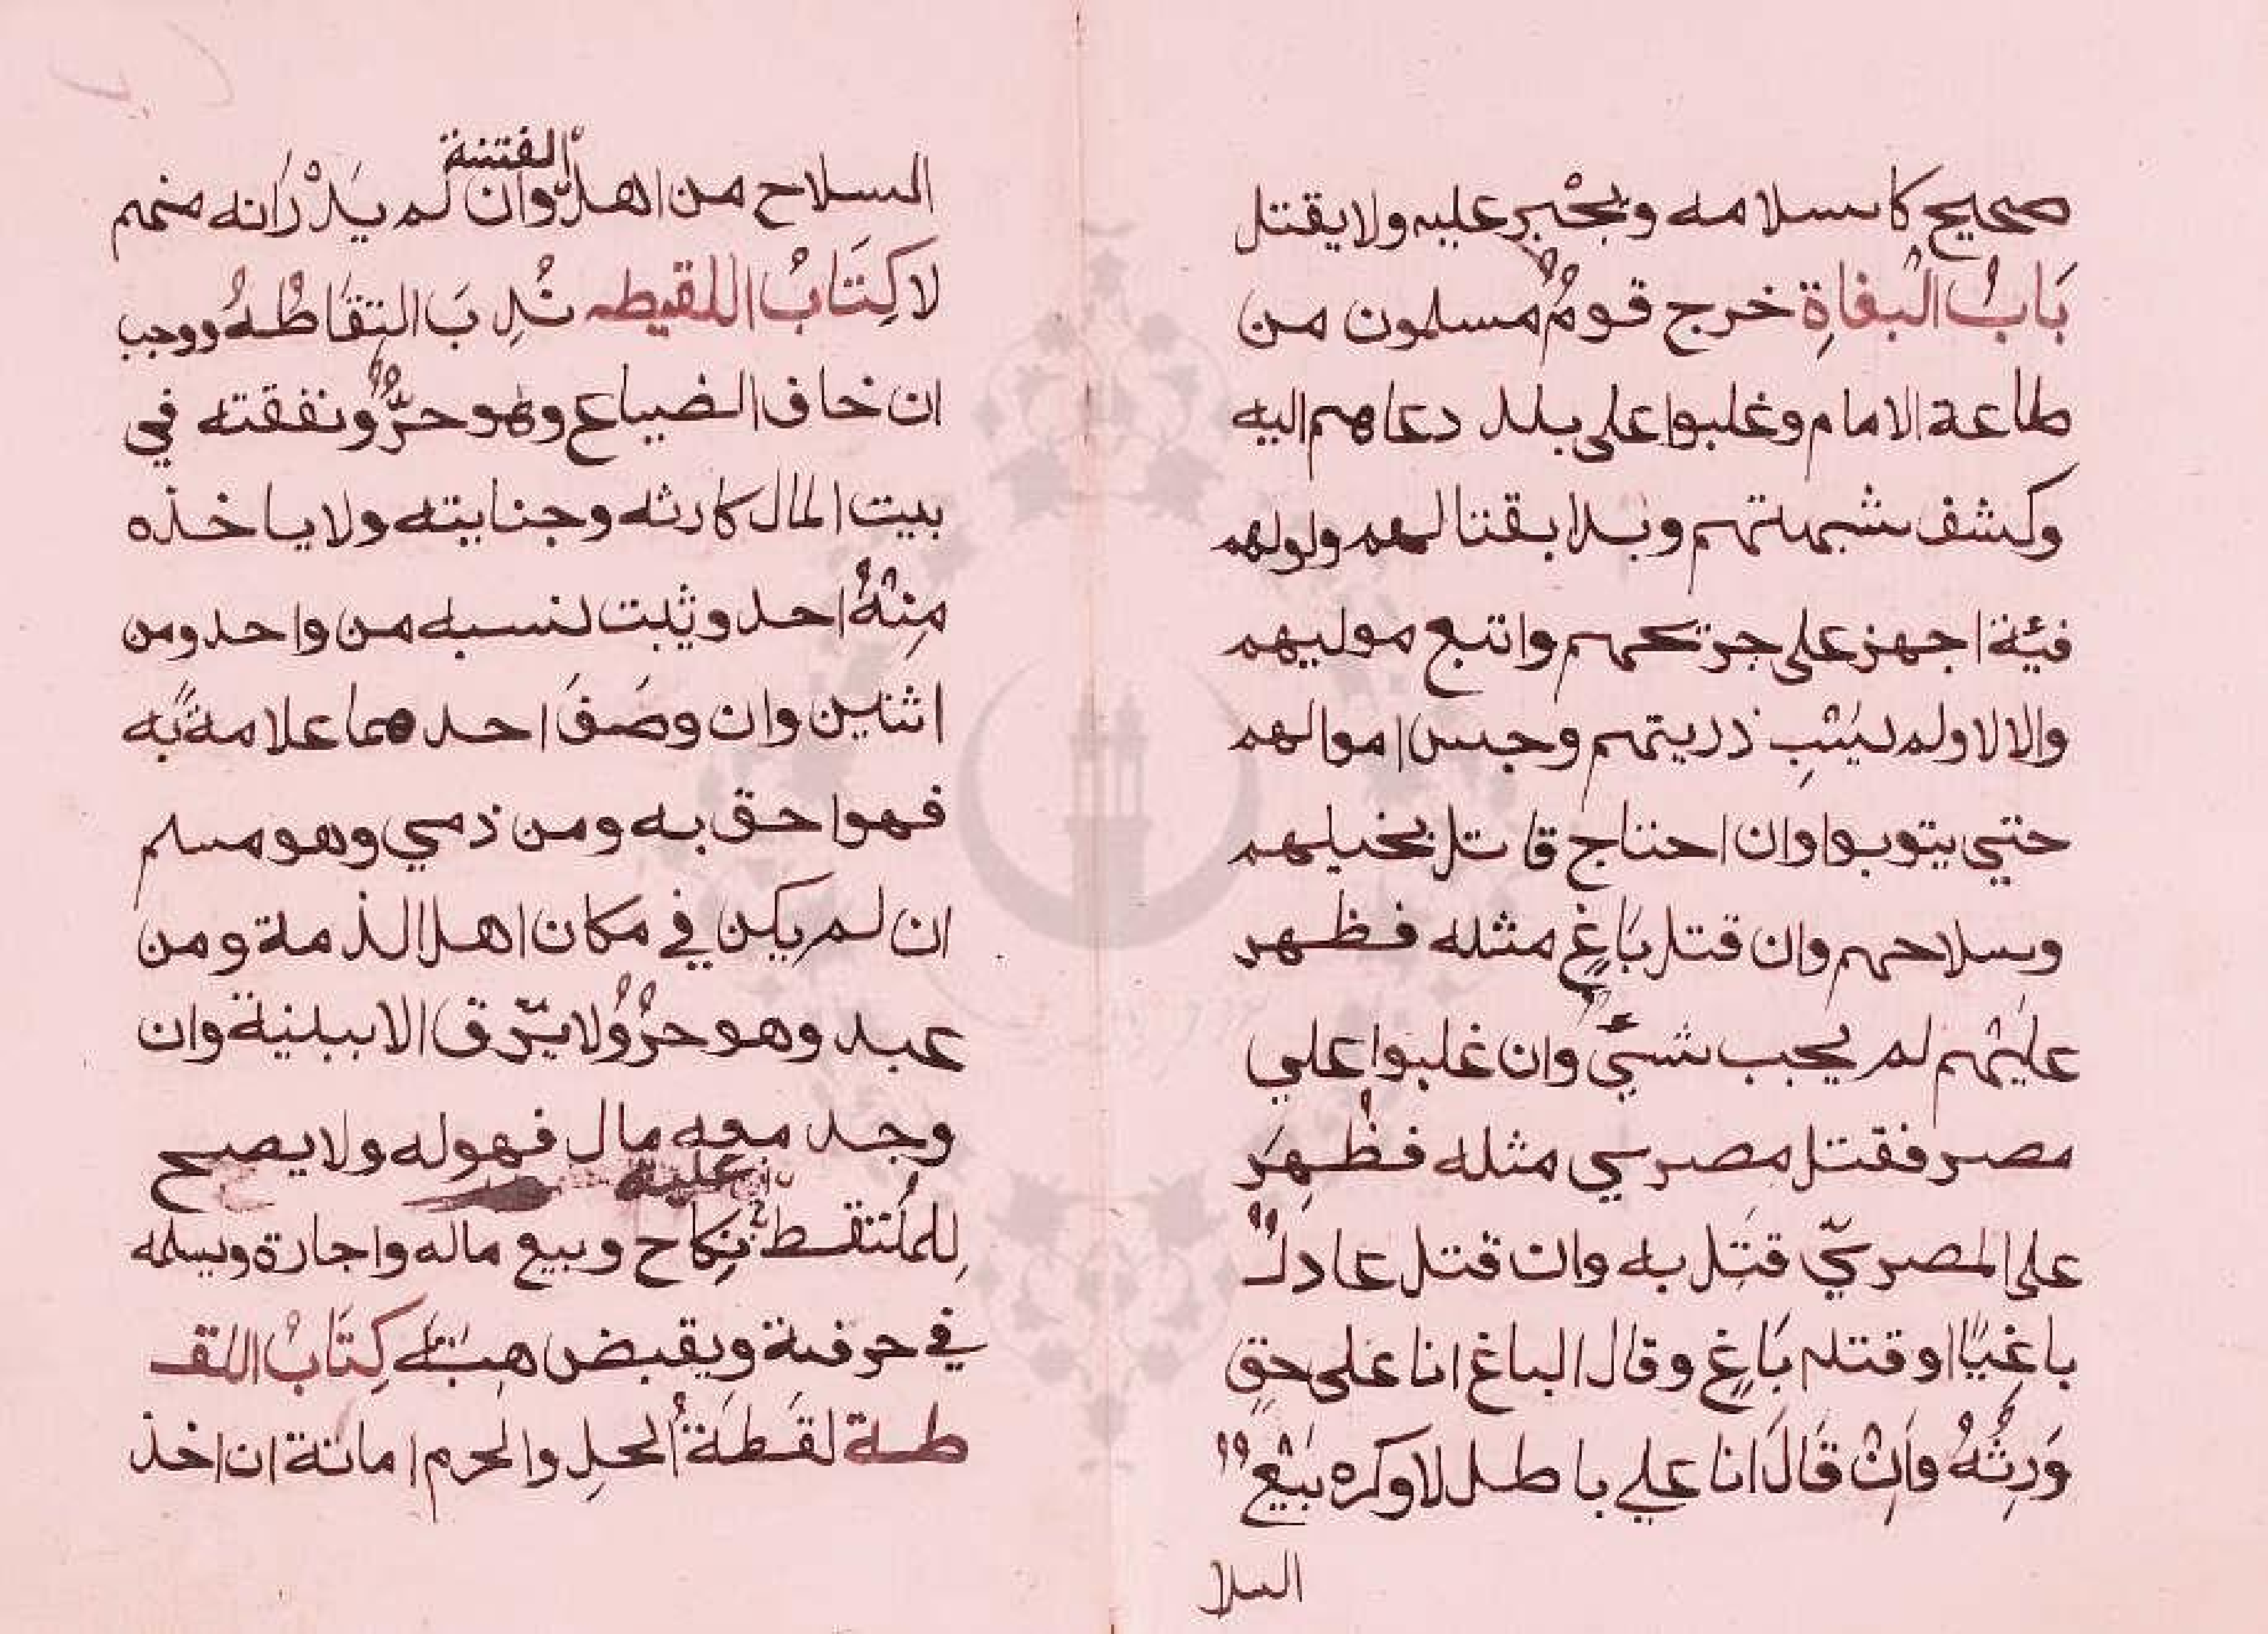 صحيح كاسلامه ويجْبر عليه ولا يقتل
بَابُ الْبغاةِ خرج قومٌ مسلمون من
طاعة الامام وغلبوا على بلد دعاهم اليه
وكشف شبهتهم وبدا بقتالهم ولو لهم
فئة اجهز على جريحهم واتبع موليهم
والا لا ولم يسْبِ ذريتهم وحبس اموالهم
حتي يتوبوا وان احتاج قاتل بخيلهم
وسلاحهم وان قتل بَاغٍ مثله فظهر
عليْهم لم يجب شيٌّ وان غلبوا علي
مصر فقتل مصري مثله فظْهِرَ
على المصريّ قتِل به وان قتل عادلٌ
باغيًا او قتله بَاغٍ وقال الباغ انا على حقٍ
وَرِثهُ وَاِنْ قَالَ انا علي باطل لا وكره بَيْعُ
السلا
السلاح من اهل الفتنة وان لم يَدْرَانه منهم
لا كِتَابُ اللقيطه نُدِبَ التِقَاطُهُ ووجب
ان خاف الضياع وهو حرٌّ ونفقته في
بيت المال كارثه وجنايته ولا ياخذه
مِنْهُ احد وثبت نسبه من واحد ومن
اثنين وان وصَفَ احدهما علامةً به
فهو احق به ومن ذمي وهو مسلم
ان لم يكن في مكان اهل الذمة ومن
عبد وهو حرٌّ ولا يرّق الا ببينة وان
وجد معه مال فهو له ولا يصح
لِلمُلتقط عليه نِكاح وبيع ماله واجارة ويسلمه
في حرفة ويقبض هبته كِتَابُ اللق
طة لقَطَةُ الحلِ والحرم امانة ان اخذ